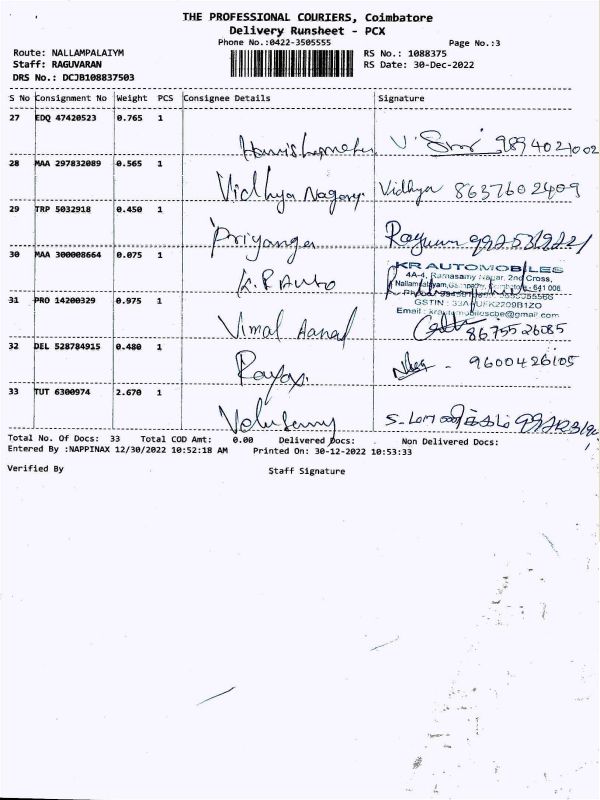 THE PROFESSIONAL COURIERS, Coimbatore
Delivery Runsheet - PCX
Phone No.:0422-3505555 Page No.:3
Route: NALLAMPALAIYM RS No.: 1088375
Staff: RAGUVARAN RS Date: 30-Dec-2022
DRS No.: DCJB108837503
S No Consignment No Weight PCS Consignee Details Signature
27 EDQ 47420523 0.765 1
9894021002
28 MAA 297832089 0.565 1
Vidhya Nagary Vidhya 8637602409
29 TRP 5032918 0.450 1
Priyanga
30 MAA 300008664 0.075 1
K.R Auto
KR AUTOMOBILES
4A-4, Ramasamy Nagar, 2nd Cross,
31 PRO 14200329 0.975 1
Vimal Anand 8675526085
32 DEL 528784915 0.480 1
9600426105
33 TUT 6300974 2.670 1
Total No. Of Docs: 33 Total COD Amt: 0.00 Delivered Docs: Non Delivered Docs:
Entered By :NAPPINAX 12/30/2022 10:52:18 AM Printed On: 30-12-2022 10:53:33
Verified By Staff Signature